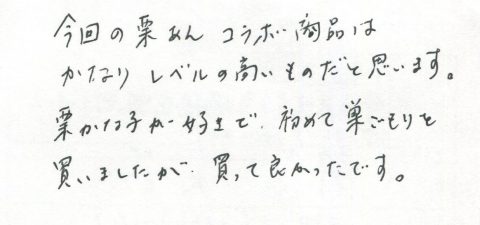 今回の栗あん コラボ商品は
かなり レベルの高いものだと思います。
栗かな子が好きで、初めて巣ごもりを
買いましたが、買って良かったです。